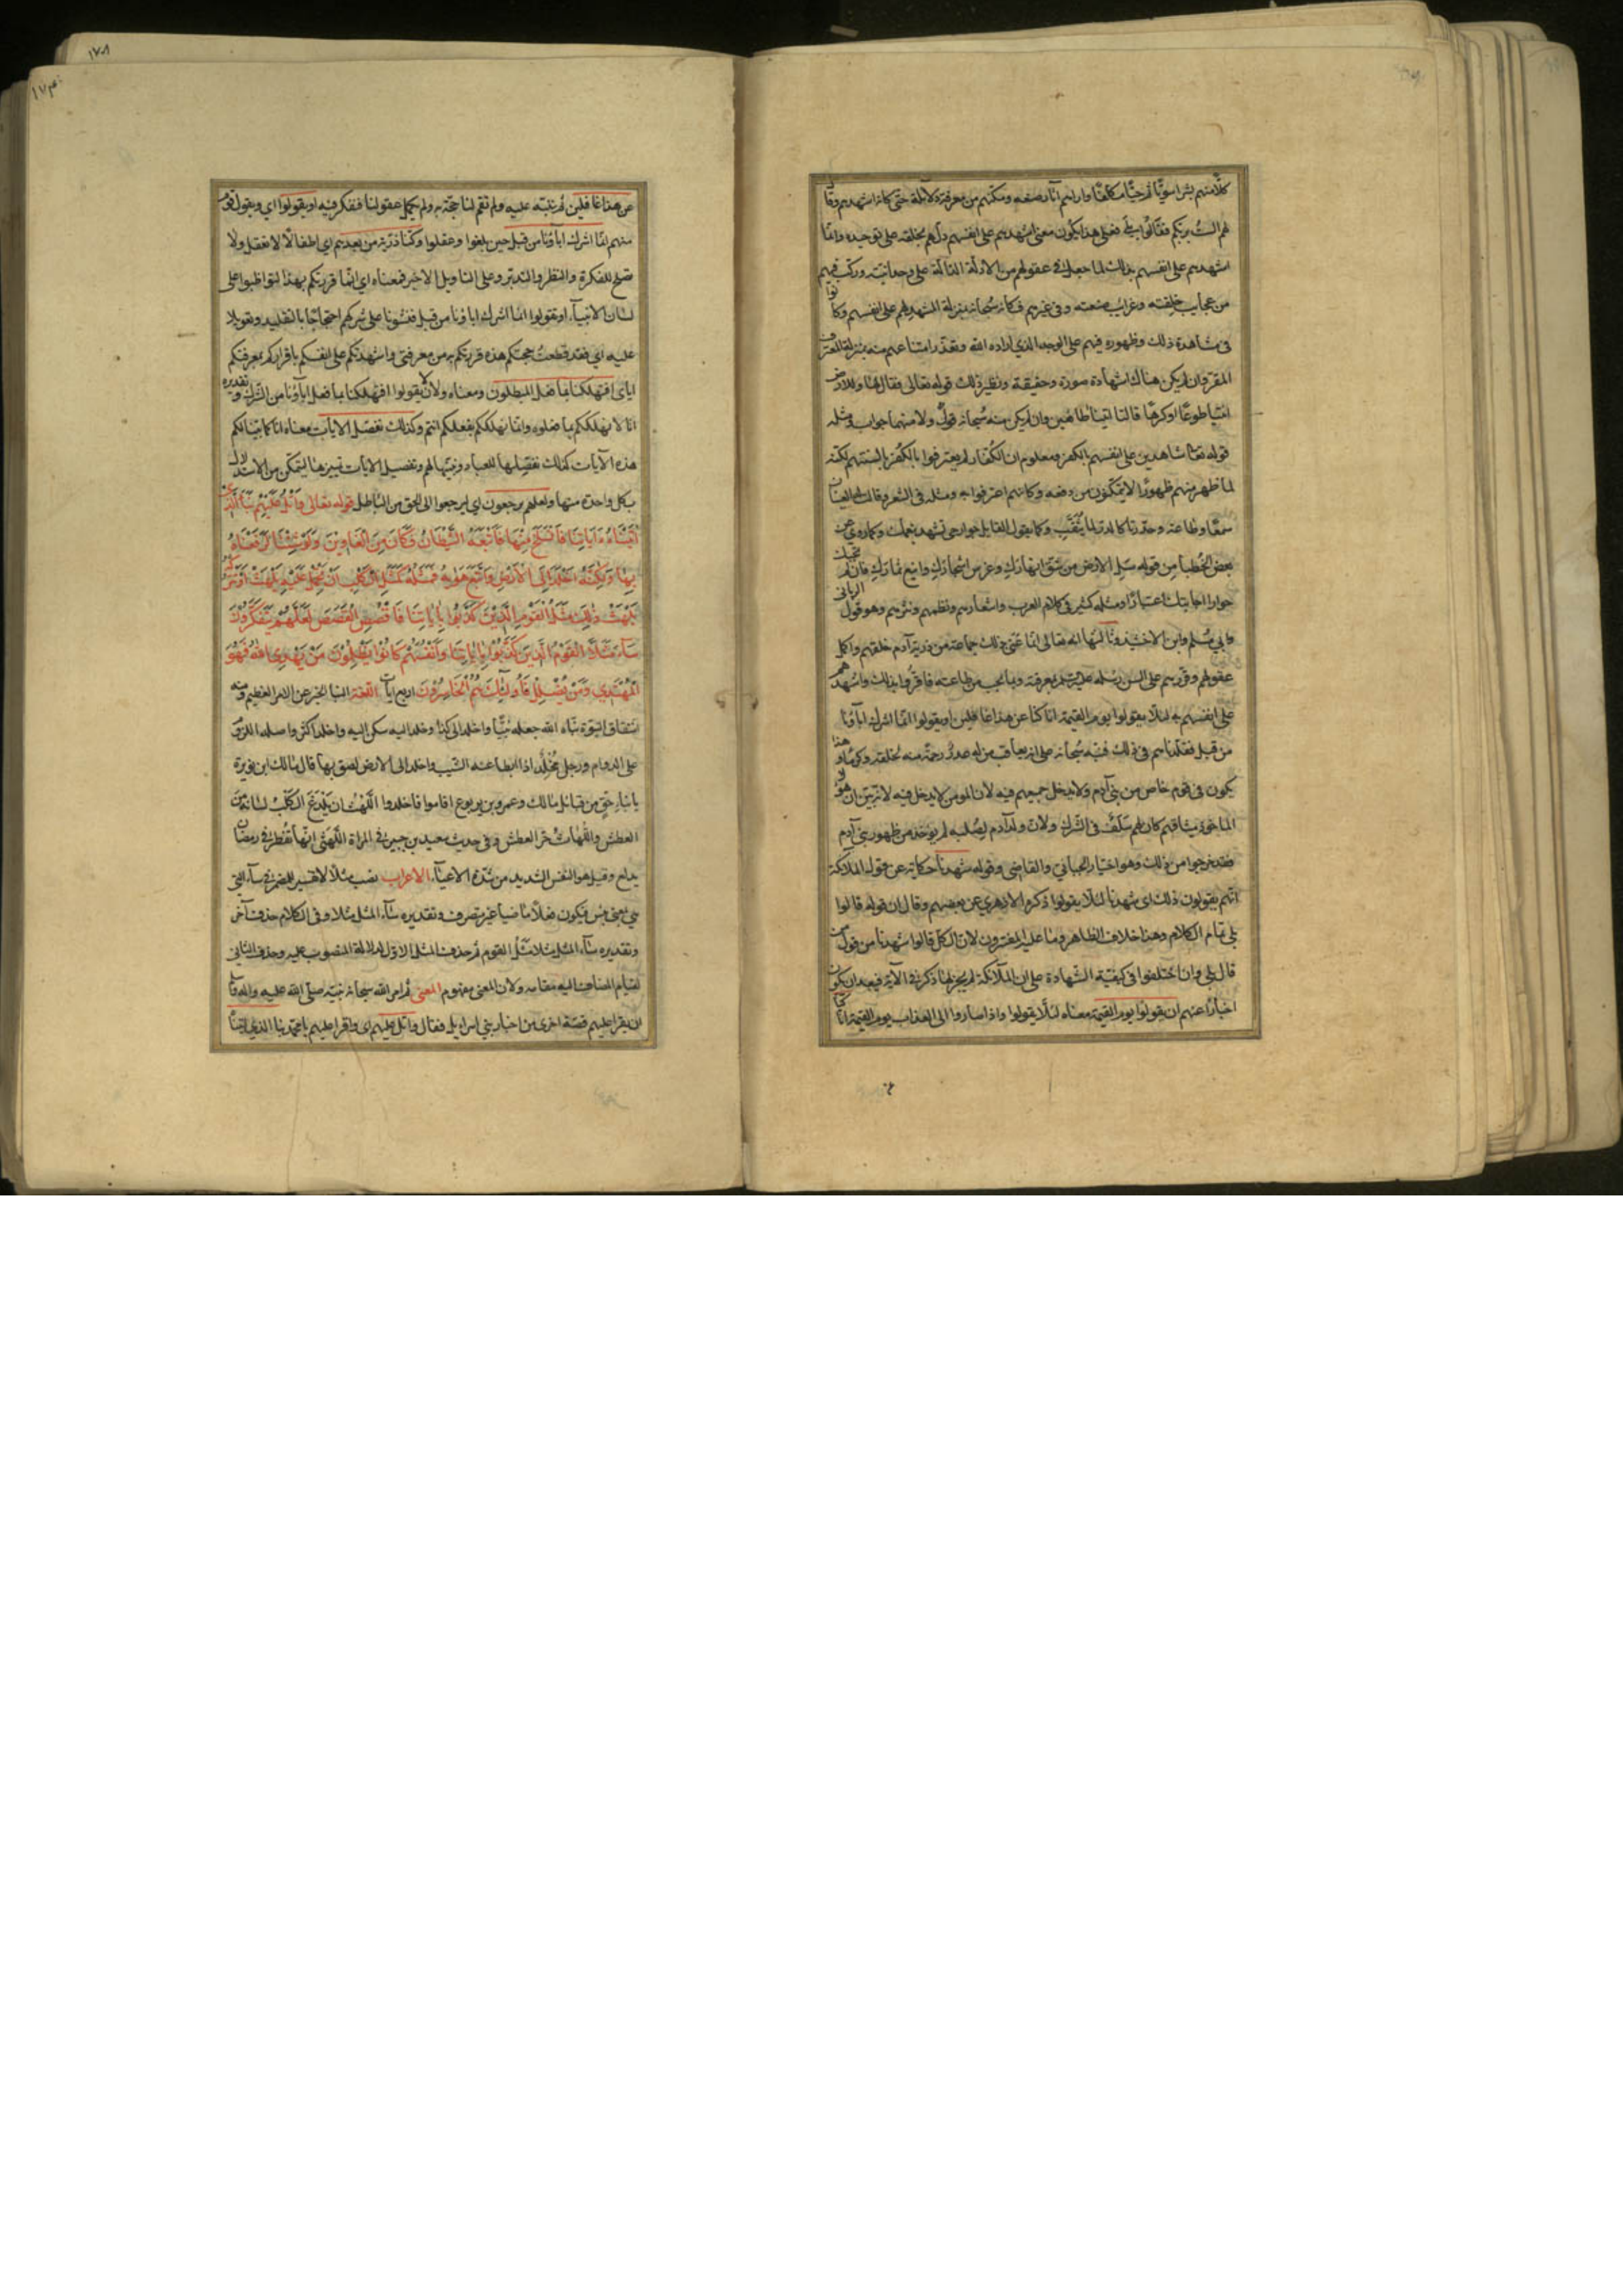 كلّا منهم بشرا سويّا ثم حيّا مكلفّا واراهم اثار صنعه ومكنهم من معرفة دلائله حتّى كانه اشهدهم وقال
لهم الستُ بربكم فقالُوا بلى فعلى هذا يكُون معنى اشهدهم على انفسهم دلّهم بخلقه على توحيده وانما
اشهدهم على انفسهم بذلك لما جعل فى عقولهم من الادلّة الدّالّة على وحدانيّته وركب فيهم
من عجايب خلقته وغرايب صنعته وفى غيرهم فكانه سُبحانه بمنزلة المشهد لهم على انفسهم وكانوا
فى مشاهدة ذلك وظهوره فيهم على الوجه الذي اراده الله وتعذّر امتناعهم منه بمنزلة المعترف
المقرّ وان لم يكن هناك اشهادة صورة وحقيقة ونظير ذلك قوله تعالى فقال لها وللارض
ائتيا طوعًا او كرهًا قالتا اتينا طائعين وان لم يكن منه سُبحانه قولٌ ولا منهما جواب ومثله
قوله تعالى شاهدين على انفسهم بالكفر ومعلوم ان الكُفّار لم يعترفوا بالكُفر بالسنتهم لكنه
لما ظهر منهم ظهورًا لا يتمكّنون من دفعه وكانهم اعترفوا به ومثله فى الشعر وقالت له العينان
سمعًا وطاعة وحدّرتا كالدر لما يُثَقَّب وكما يقول القايل جوارحى تشهد بنعمتك وكما روي عن
بعض الخُطباء من قوله سَلِ الارض من شقّ انهاركِ وغرس اشجاركِ واينع ثماركِ فان لم تجبك
جوارا اجابتك اعتبارًا ومثله كثير فى كلام العرب واشعارهم ونظمهم ونثرهم وهو قول الرمانى
وابي مسلم وابن الاخشيد وثالثها انه تعالى انّما عَنى بذلك جماعة من ذريّة آدم خلقهم واكمل
عقولهم وقرّرهم على السن رسله عليهم السلم بمعرفته وبما يجب من طاعته فاقرُّوا بذلك واشهدهم
على انفسهم به لئلّا يقولوا يوم القيمة انا كنّا عن هذا غافلين او يقولوا انّما اشرك اباؤنا
من قبل فقلّدناهم فى ذلك فنبّه سُبحانه على انه لا يعاقب من له عذرٌ رحمةً منه لخلقه وكرمًا وهذا
يكون فى قوم خاص من بنى آدم ولا يدخل جميعهم فيه لان المومن لا يدخل فيه لانه بيّن ان هؤلاء
الماخوذ ميثاقهم كان لهم سَلَفٌ فى الشّرك ولان ولد آدم لصُلبه لم يؤخذ من ظهور بنى آدم
فقد خرجوا من ذلك وهو اختيار الجبائى والقاضى وقوله شهدنا حكاية عن قول الملائكة
انّهم يقولون ذلك اى شهدنا لئلّا يقولوا ذكره الازهري عن بعضهم وقال ان قوله قالوا
بلى تمام الكلام وهذا خلاف الظاهر وما عليه المفسّرون لان الكلّ قالوا شهدنا من قول من
قال بلى وان اختلفوا فى كيفيّة الشّهادة على ان الملائكة لم يجر لها ذكر فى الآية فيبعد ان يكون
اخبارًا عنهم ان يقولوا يوم القيمة معناه لئلّا يقولوا واذا صاروا الى العذاب يوم القيمة انا كنّا
عن هذا غافلين لم نتنبّه عليه ولم تقم لنا حجّة به ولم تكمل عقولنا فنفكر فيه او يقولوا اي ويقول قوم
منهم انّما اشرك اباؤنا من قبل حين بلغوا وعقلوا وكنّا ذريّة من بعدهم اي اطفالًا لا نعقل ولا
نصلح للفكرة والنظر والتدبّر وعلى التاويل الاخير فمعناه اي انّما قررتكم بهذا لتواظبوا على
انما اشرك اباؤنا من قبل فنشونا على شركهم احتجاجًا بالتقليد وتعويلا
عليه اي فقد قطعتُ حجتكم هذه قررتكم به من معرفتى واشهدتكم على انفسكم باقراركم بمعرفتكم
اياى افتهلكنا بما فعل المبطلون ومعناه ولان لا يقولوا افتهلكنا بما فعل آباؤنا من الشّرك وتقديره
انا لا نهلككم بما فعلوه وانّما نهلككم بفعلكم انتم وكذلك نفصّل الايات معناه انا كما بيّنا لكم
هذه الآيات كذلك نفصّلها للعباد ونبيّنها لهم وتفصيل الايات تمييزها ليتمكّن من الاستدلال
بكل واحدة منها ولعلهم يرجعون اى ليرجعوا الى الحق من الباطل قوله تعالى وَاتْلُ عَلَيْهِمْ نَبَأَ الَّذِى
آتَيْنَاهُ ءَايَاتِنَا فَانْسَلَخَ مِنْهَا فَأَتْبَعَهُ الشَّيْطَانُ فَكَانَ مِنَ الْغَاوِينَ وَلَوْ شِئْنَا لَرَفَعْنَاهُ
بِهَا وَلَكِنَّهُ اَخْلَدَ اِلَى الْاَرْضِ وَاتَّبَعَ هَوٰيهُ فَمَثَلُهُ كَمَثَلِ الْكَلْبِ اِنْ تَحْمِلْ عَلَيْهِ يَلْهَثْ اَوْ تَتْرُكْهُ
يَلْهَثْ ذٰلِكَ مَثَلُ الْقَوْمِ الَّذِيْنَ كَذَّبُوا بِاٰيَاتِنَا فَاقْصُصِ الْقَصَصَ لَعَلَّهُمْ يَتَفَكَّرُوْنَ
سَآءَ مَثَلًا الْقَوْمُ الَّذِيْنَ كَذَّبُوْا بِاٰيَاتِنَا وَاَنْفُسَهُمْ كَانُوْا يَظْلِمُوْنَ مَنْ يَهْدِى اللهُ فَهُوَ
الْمُهْتَدِي وَمَنْ يُضْلِلْ فَاُولٰئِكَ هُمُ الْخَاسِرُوْنَ اربع ايات اللّغة النبا الخبر عن الامر العظيم ومنه
اشتقاق النبوّة نبّاه الله جعله نبيًّا واخلد الى كذا وخلد اليه سكن اليه واخلد اكثر واصله اللزوم
على الدوام ورجل مُخْلَد اذا ابطا عنه الشيب واخلد الى الارض لصق بها قال مالك ابن نويرة
بابناء حىّ من قبائل مالك وعمرو بن يربوع اقاموا فاخلدوا اللّهْث ان يَدْلَعَ الكَلْبُ لسانه من
العطش واللُّهاثُ حَرّ العطش وفى حديث سعيد بن جبير فى المراة اللَّهْثى انّها تُفْطِر فى رمضان
وقيل هو النفس الشديد من شدّة الاعياء الاعراب نصب مثلًا لانه تفسير للضمير فى ساء التى
هى بمعنى بئس ويكون فعلًا ماضيا غير متصرف وتقديره ساء المثل مثلا وفى الكلام حذف آخر
وتقديره ساء المثل مثلا مَثَلُ القوم ثم حذف المثل الاوّل لدلالة المنصوب عليه وحذف الثانى
لقيام المضاف اليه مقامه ولان المعنى مفهوم المعنى ثم امر الله سبحانه نبيّه صلّى الله عليه واله
ان يقرا عليهم قصّة اخرى من اخبار بنى اسرايل فقال واتل عليهم اى واقرا عليهم يا محمّد نبا الذى اتيناه